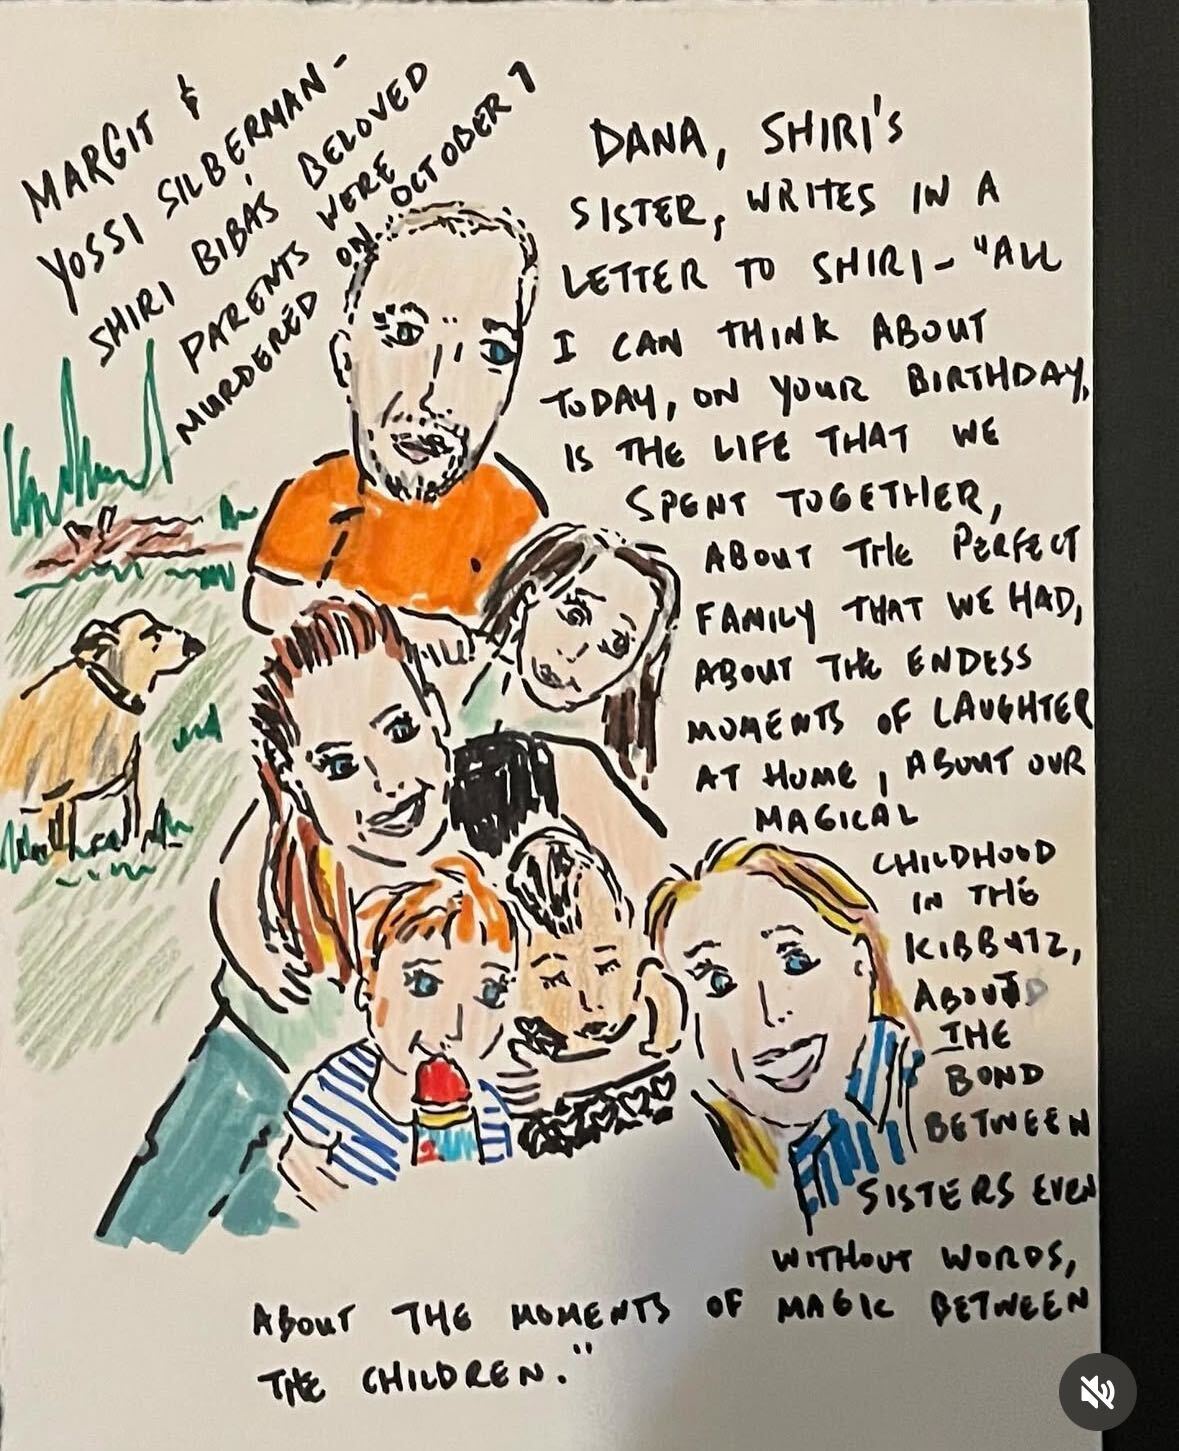 MARGIT &
YOSSI SILBERMAN-
SHIRI BIBAS' BELOVED
PARENTS WERE
MURDERED ON OCTOBER 7
DANA, SHIRI'S
SISTER, WRITES IN A
LETTER TO SHIRI- "ALL
I CAN THINK ABOUT
TODAY, ON YOUR BIRTHDAY,
IS THE LIFE THAT WE
SPENT TOGETHER,
ABOUT THE PERFECT
FAMILY THAT WE HAD,
ABOUT THE ENDESS
MOMENTS OF LAUGHTER
AT HOME, ABOUT OUR
MAGICAL
CHILDHOOD
IN THE
KIBBUTZ,
ABOUT
THE
BOND
BETWEEN
SISTERS EVEN
WITHOUT WORDS,
ABOUT THE MOMENTS OF MAGIC BETWEEN
THE CHILDREN."